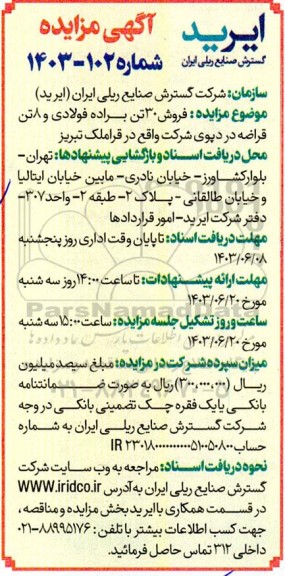 ایرید
گسترش صنایع ریلی ایران
آگهی مزایده
شماره ۱۰۲-۱۴۰۳
سازمان: شرکت گسترش صنایع ریلی ایران (ایرید)
موضوع مزایده : فروش ۳۰ تن براده فولادی و ۸ تن
قراضه در دپوی شرکت واقع در قراملک تبریز
محل دریافت اسناد و بازگشایی پیشنهادها: تهران-
بلوار کشاورز- خیابان نادری- مابین خیابان ایتالیا
و خیابان طالقانی - پلاک ۲- طبقه ۲- واحد ۳۰۷-
دفتر شرکت ایرید- امور قراردادها
مهلت دریافت اسناد: تا پایان وقت اداری روز پنجشنبه
۱۴۰۳/۰۶/۰۸
مهلت ارائه پیشنهادات: تا ساعت ۱۴:۰۰ روز سه شنبه
مورخ ۱۴۰۳/۰۶/۲۰
ساعت و روز تشکیل جلسه مزایده: ساعت ۱۵:۰۰ سه شنبه
مورخ ۱۴۰۳/۰۶/۲۰
میزان سپرده شرکت در مزایده: مبلغ سیصد میلیون
ریال (۳۰۰,۰۰۰,۰۰۰) ریال به صورت ضمانتنامه
بانکی یا یک فقره چک تضمینی بانکی در وجه
شرکت گسترش صنایع ریلی ایران به شماره
حساب
نحوه دریافت اسناد: مراجعه به وب سایت شرکت
گسترش صنایع ریلی ایران به آدرس WWW.iridco.ir
در قسمت همکاری با ایرید بخش مزایده و مناقصه ،
جهت کسب اطلاعات بیشتر با تلفن : ۸۸۹۹۵۱۷۶-۰۲۱
داخلی ۳۱۲ تماس حاصل فرمائید.